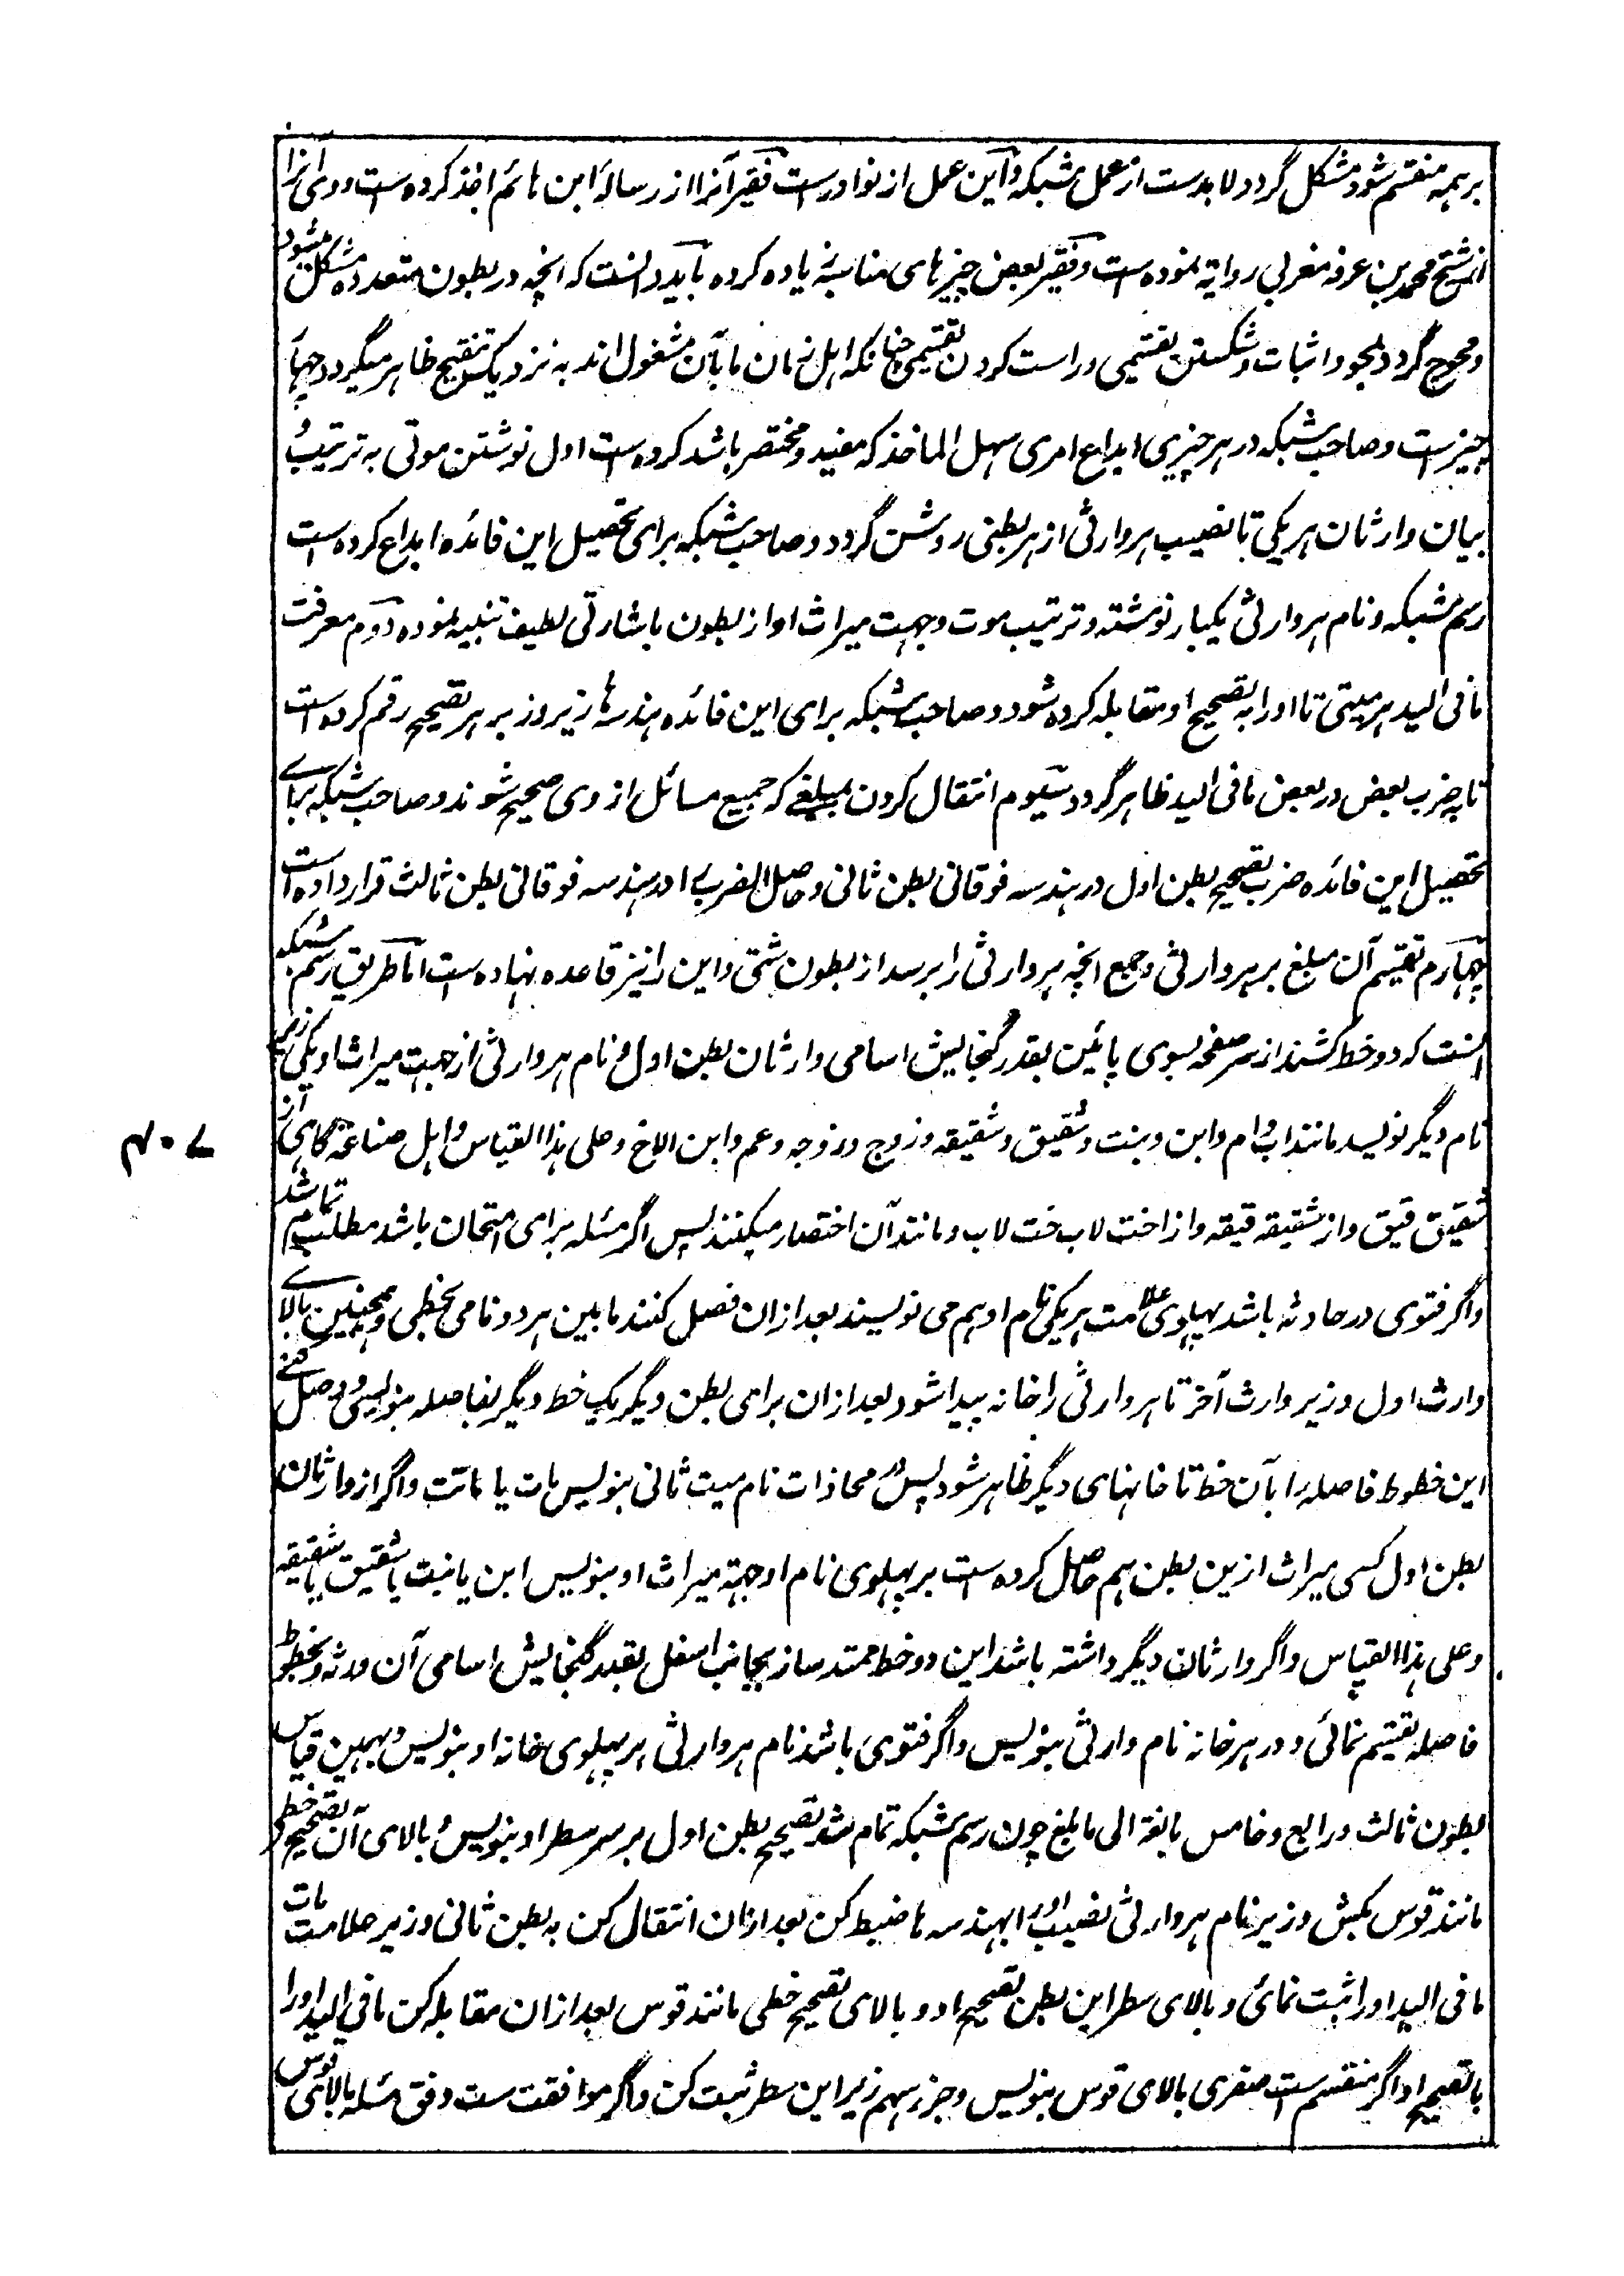 بر همه منقسم شود مشکل گردد لابدست از عمل شبکه و این عمل از نوادرست فقیر آنرا از رسالهٔ ابن هائم اخذ کرده است و وی آنرا
از شیخ محمد بن عرفه مغربی روایة نموده است و فقیر بعض چیزهای مناسبة زیاده کرده باید دانست که انچه در بطون متعدده مشکل میشود
و محوج گردد بمحو و اثبات و شکستن تقسیمی و راست کردن تقسیمی چنانکه اهل زمان ما بآن مشغول اند به نزدیک تنقیح ظاهر میگردد چهار
چیزست و صاحب شبکه در هر چیزی ابداع امری سهل الماخذ که مفید و مختصر باشد کرده است اول نوشتن موتی به ترتیب و
بیان وارثان هر یکی تا نصیب هر وارثی از هر بطنی روشن گردد و صاحب شبکه برای تحصیل این فائده ابداع کرده است
رسم شبکه و نام هر وارثی یکبار نوشته و ترتیب موت و جهت میراث او از بطون باشارتی لطیف تنبیه نموده دوم معرفت
ما فی الید هر میتی تا او را به تصحیح او مقابله کرده شود و صاحب شبکه برای این فائده هندسه ها زیر و زبر هر تصحیح رقم کرده است
تا به ضرب بعض در بعض ما فی الید ظاهر گردد سیوم انتقال کردن بمبلغی که جمیع مسائل از وی صحیح شوند و صاحب شبکه برای
تحصیل این فائده ضرب تصحیح بطن اول در هندسه فوقانی بطن ثانی و حاصل الضرب را در هندسه فوقانی بطن ثالث قرار داده است
چهارم تقسیم آن مبلغ بر هر وارثی و جمع انچه هر وارثی را برسد از بطون شتی و این را نیز قاعده نهاده است اما طریق رسم شبکه
انست که دو خط کشند از سر صفحه بسوی پائین بقدر گنجایش اسامی وارثان بطن اول و نام هر وارثی از جهت میراث او یکی زیر
نام دیگر نویسد مانند اب و ام و ابن و بنت و شقیق و شقیقه و زوج و زوجه و عم و ابن الاخ و علی هذا القیاس و اهل صناعة گاهی از
شقیق قیق و از شقیقه قیقه و از اخت لاب خت لاب و مانند آن اختصار میکنند پس اگر مسئله برای امتحان باشد مطلب تمام شد
و اگر فتوی در حادثه باشد بپهلوی علامت هر یکی نام او هم می نویسند بعد ازان فصل کنند ما بین هر دو نامی بخطی و همچنین بالای
وارث اول و زیر وارث آخر تا هر وارثی را خانه پیدا شود بعد ازان برای بطن دیگر یک خط دیگر بفاصله بنویسی و وصل کنی
این خطوط فاصله را بآن خط تا خانهای دیگر ظاهر شود پس در محاذات نام میت ثانی بنویس مات یا ماتت و اگر از وارثان
بطن اول کسی میراث ازین بطن هم حاصل کرده است بر پهلوی نام او جهة میراث او بنویس ابن یا بنت یا شقیق یا شقیقه
و علی هذا القیاس و اگر وارثان دیگر داشته باشد این دو خط ممتد ساز بجانب اسفل بقدر گنجایش اسامی آن ورثه و بخطوط
فاصله تقسیم نمائی و در هر خانه نام وارثی بنویس و اگر فتوی باشد نام هر وارثی بر پهلوی خانه او بنویس و بهمین قیاس
بطون ثالث و رابع و خامس بالغة الی ما بلغ چون رسم شبکه تمام شد تصحیح بطن اول بر سر سطر او بنویس و بالای آن تصحیح خطی
مانند قوس بکش و زیر نام هر وارثی نصیب او را بهندسه ها ضبط کن بعد ازان انتقال کن به بطن ثانی و زیر علامت مات
ما فی الید او را ثبت نمائی و بالای سطر این بطن تصحیح او و بالای تصحیح خطی مانند قوس بعد ازان مقابله کن ما فی الید او را
با تصحیح او اگر منقسم ست صفری بالای قوس بنویس و جزء سهم زیر این سطر ثبت کن و اگر موافقت ست وفق مسئله بالای قوس
۴۰۷